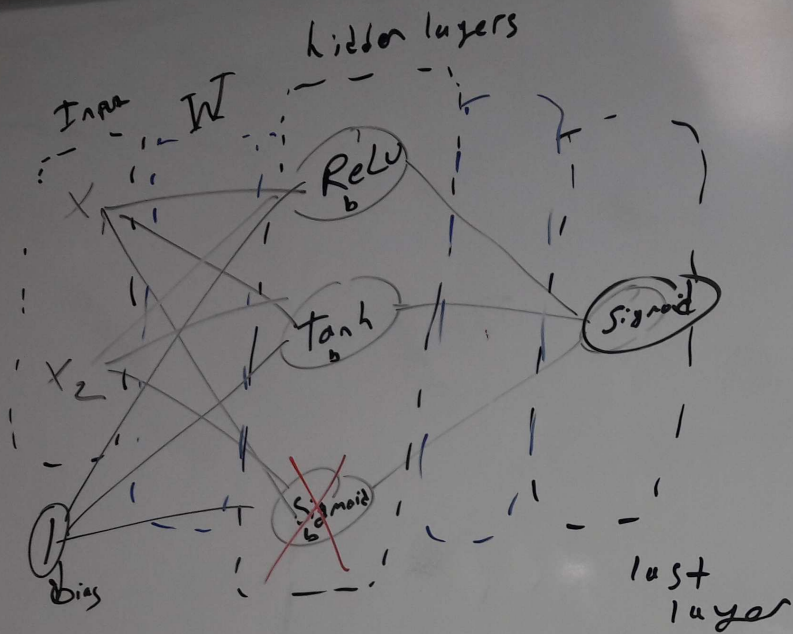 hidden layers
Input
W
X1
ReLu
b
tanh
b
X2
Sigmoid
Sigmoid
b
1
bias
last
layer